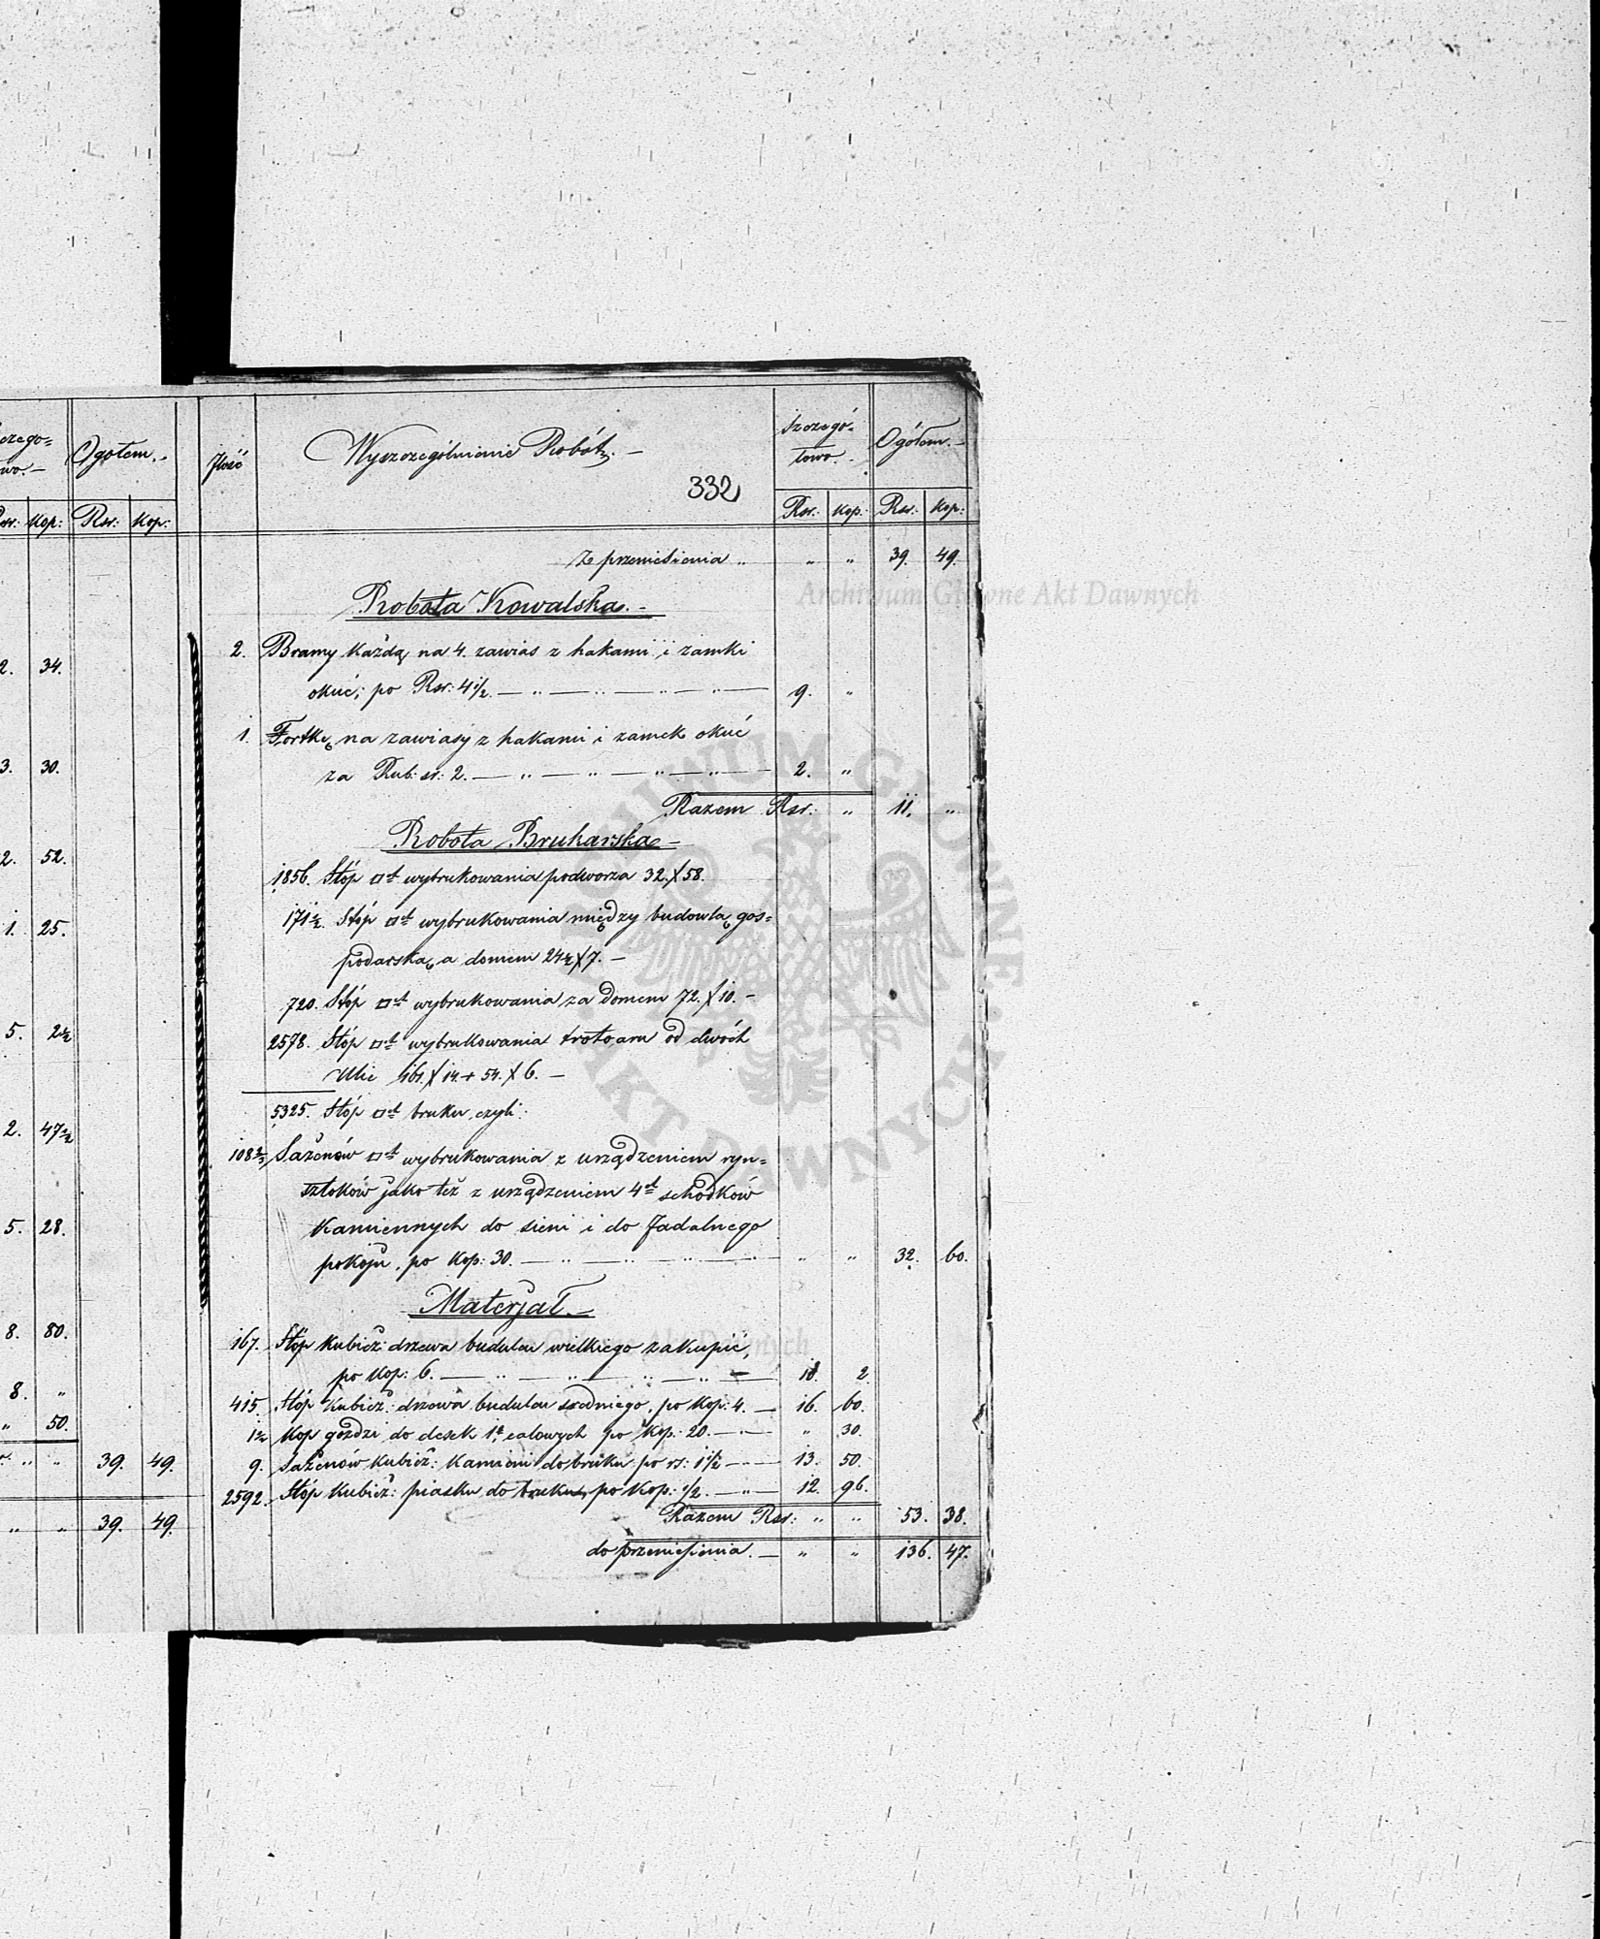 Ogołem.
Rsr: Kop: Rsr: Kop:
2. 34.
3. 30.
2. 52.
1. 25.
5. 2½
2. 47½
5. 28.
8. 80.
8. "
" 50.
" " 39. 49.
" " 39. 49.
Ilość Wyszczególnienie Robót. Szczegó- Ogółem.
towo.
332
Rsr: Kop: Rsr: Kop:
Z przeniesienia " " " 39. 49.
Robota Kowalska.
2. Bramy każdą na 4. zawias z hakami i zamki
okuć; po Rsr: 4½. 9. "
1. Fortkę na zawiasy z hakami i zamek okuć
za Rub: sr: 2. 2. "
Razem Rsr: " 11. "
Robota Brukarska
1856. Stóp □t wybrukowania podworza 32. X 58.
171½. Stóp □t wybrukowania między budowlą gos=
podarską a domem 24½ X 7.
720. Stóp □t wybrukowania za domem 72. X 10.
2578. Stóp □t wybrukowania trotoaru od dwóch
Ulic 161. X 14. + 54. X 6.
5325. Stóp □t bruku, czyli:
108⅔ Sażenów □t wybrukowania z urządzeniem ryn=
sztoków jako też z urządzeniem 4ch schodków
Kamiennych do sieni i do Jadalnego
pokoju, po Kop: 30. " " 32. 60.
Materjał.
167. Stóp Kubicz: drzewa budulcu wielkiego zakupić,
po Kop: 6. 10. 2.
415. Stóp Kubicz: drzewa budulcu średniego, po Kop: 4. 16. 60.
1½ Kop goździ do desek 1o calowych po Kop: 20. " 30.
9. Sażenów Kubicz: Kamieni do bruku po rs: 1½ 13. 50.
2592. Stóp Kubicz: piasku do bruku, po Kop: ½. 12. 96.
Razem Rsr: " " 53. 38.
do przeniesienia. " " 136. 47.
Archiwum Główne Akt Dawnych
ARCHIWUM GŁÓWNE AKT DAWNYCH
Archiwum Główne Akt Dawnych